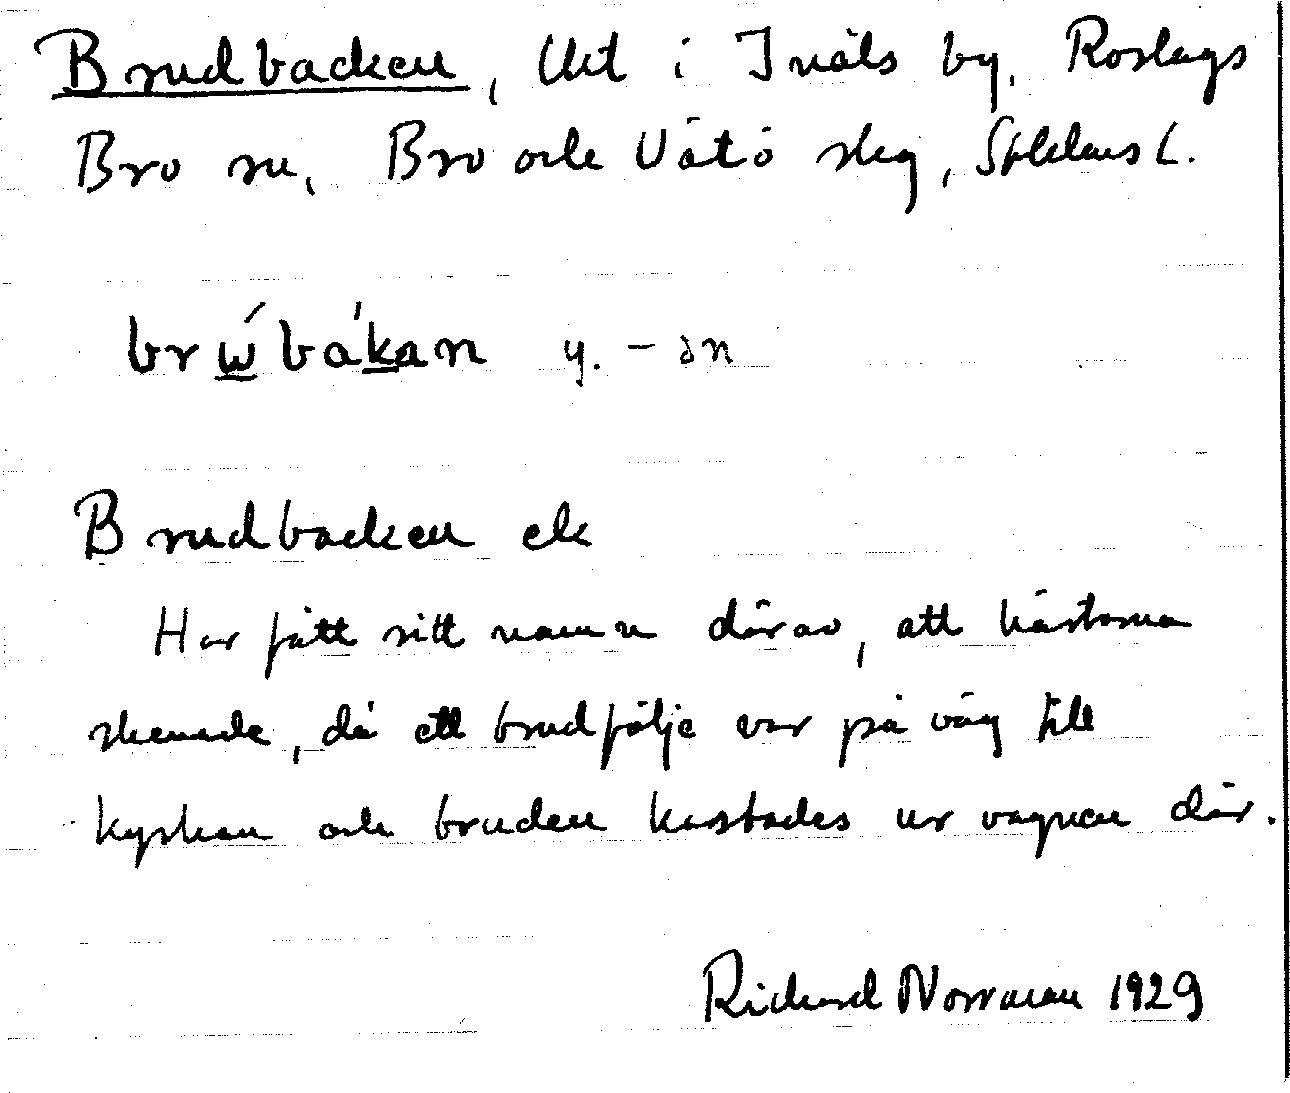 Brudbacken, Utt i Inäls by, Roslags
Bro sn, Bro och Vätö skg, Sthlms L.
brẃbákan y. - ən
Brudbacken ek
Har fått sitt namn därav, att hästarna
skenade, då ett brudfölje var på väg till
kyrkan och bruden kastades ur vagnen där.
Richard Norrman 1929